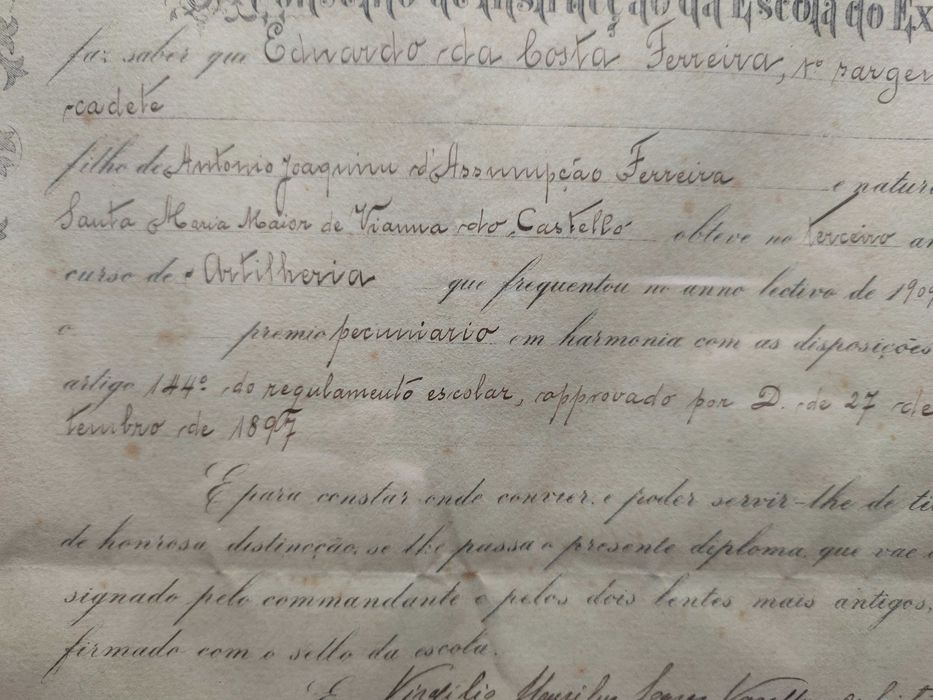 Conselho de Instrucção da Escola do Ex
faz saber que Eduardo da Costa Ferreira, 1º sargen
cadete
filho de Antonio Joaquim d'Assumpção Ferreira e natura
Santa Maria Maior de Vianna do Castello obteve no terceiro an
curso de Artilheria que frequentou no anno lectivo de 190
o premio pecuniario em harmonia com as disposições
artigo 144º do regulamento escolar, approvado por D. de 27 de
tembro de 1897
E para constar onde convier, e poder servir-lhe de ti
de honrosa distincção, se lhe passa o presente diploma, que vae
signado pelo commandante e pelos dois lentes mais antigos,
firmado com o sello da escola.
E Virgilio